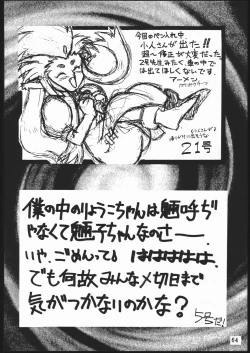 今回のペン入れ中
小人さんが出た!!
2号先生みたく、車の中で
は出てほしくないです。
アーメン
21号
僕の中のりょうこちゃんは魎呼ぢ
ゃなくて魎子ちゃんなのさ——
いや、ごめんって。ははははは。
でも何故みんな〆切日まで
気がつかないのかな?
64